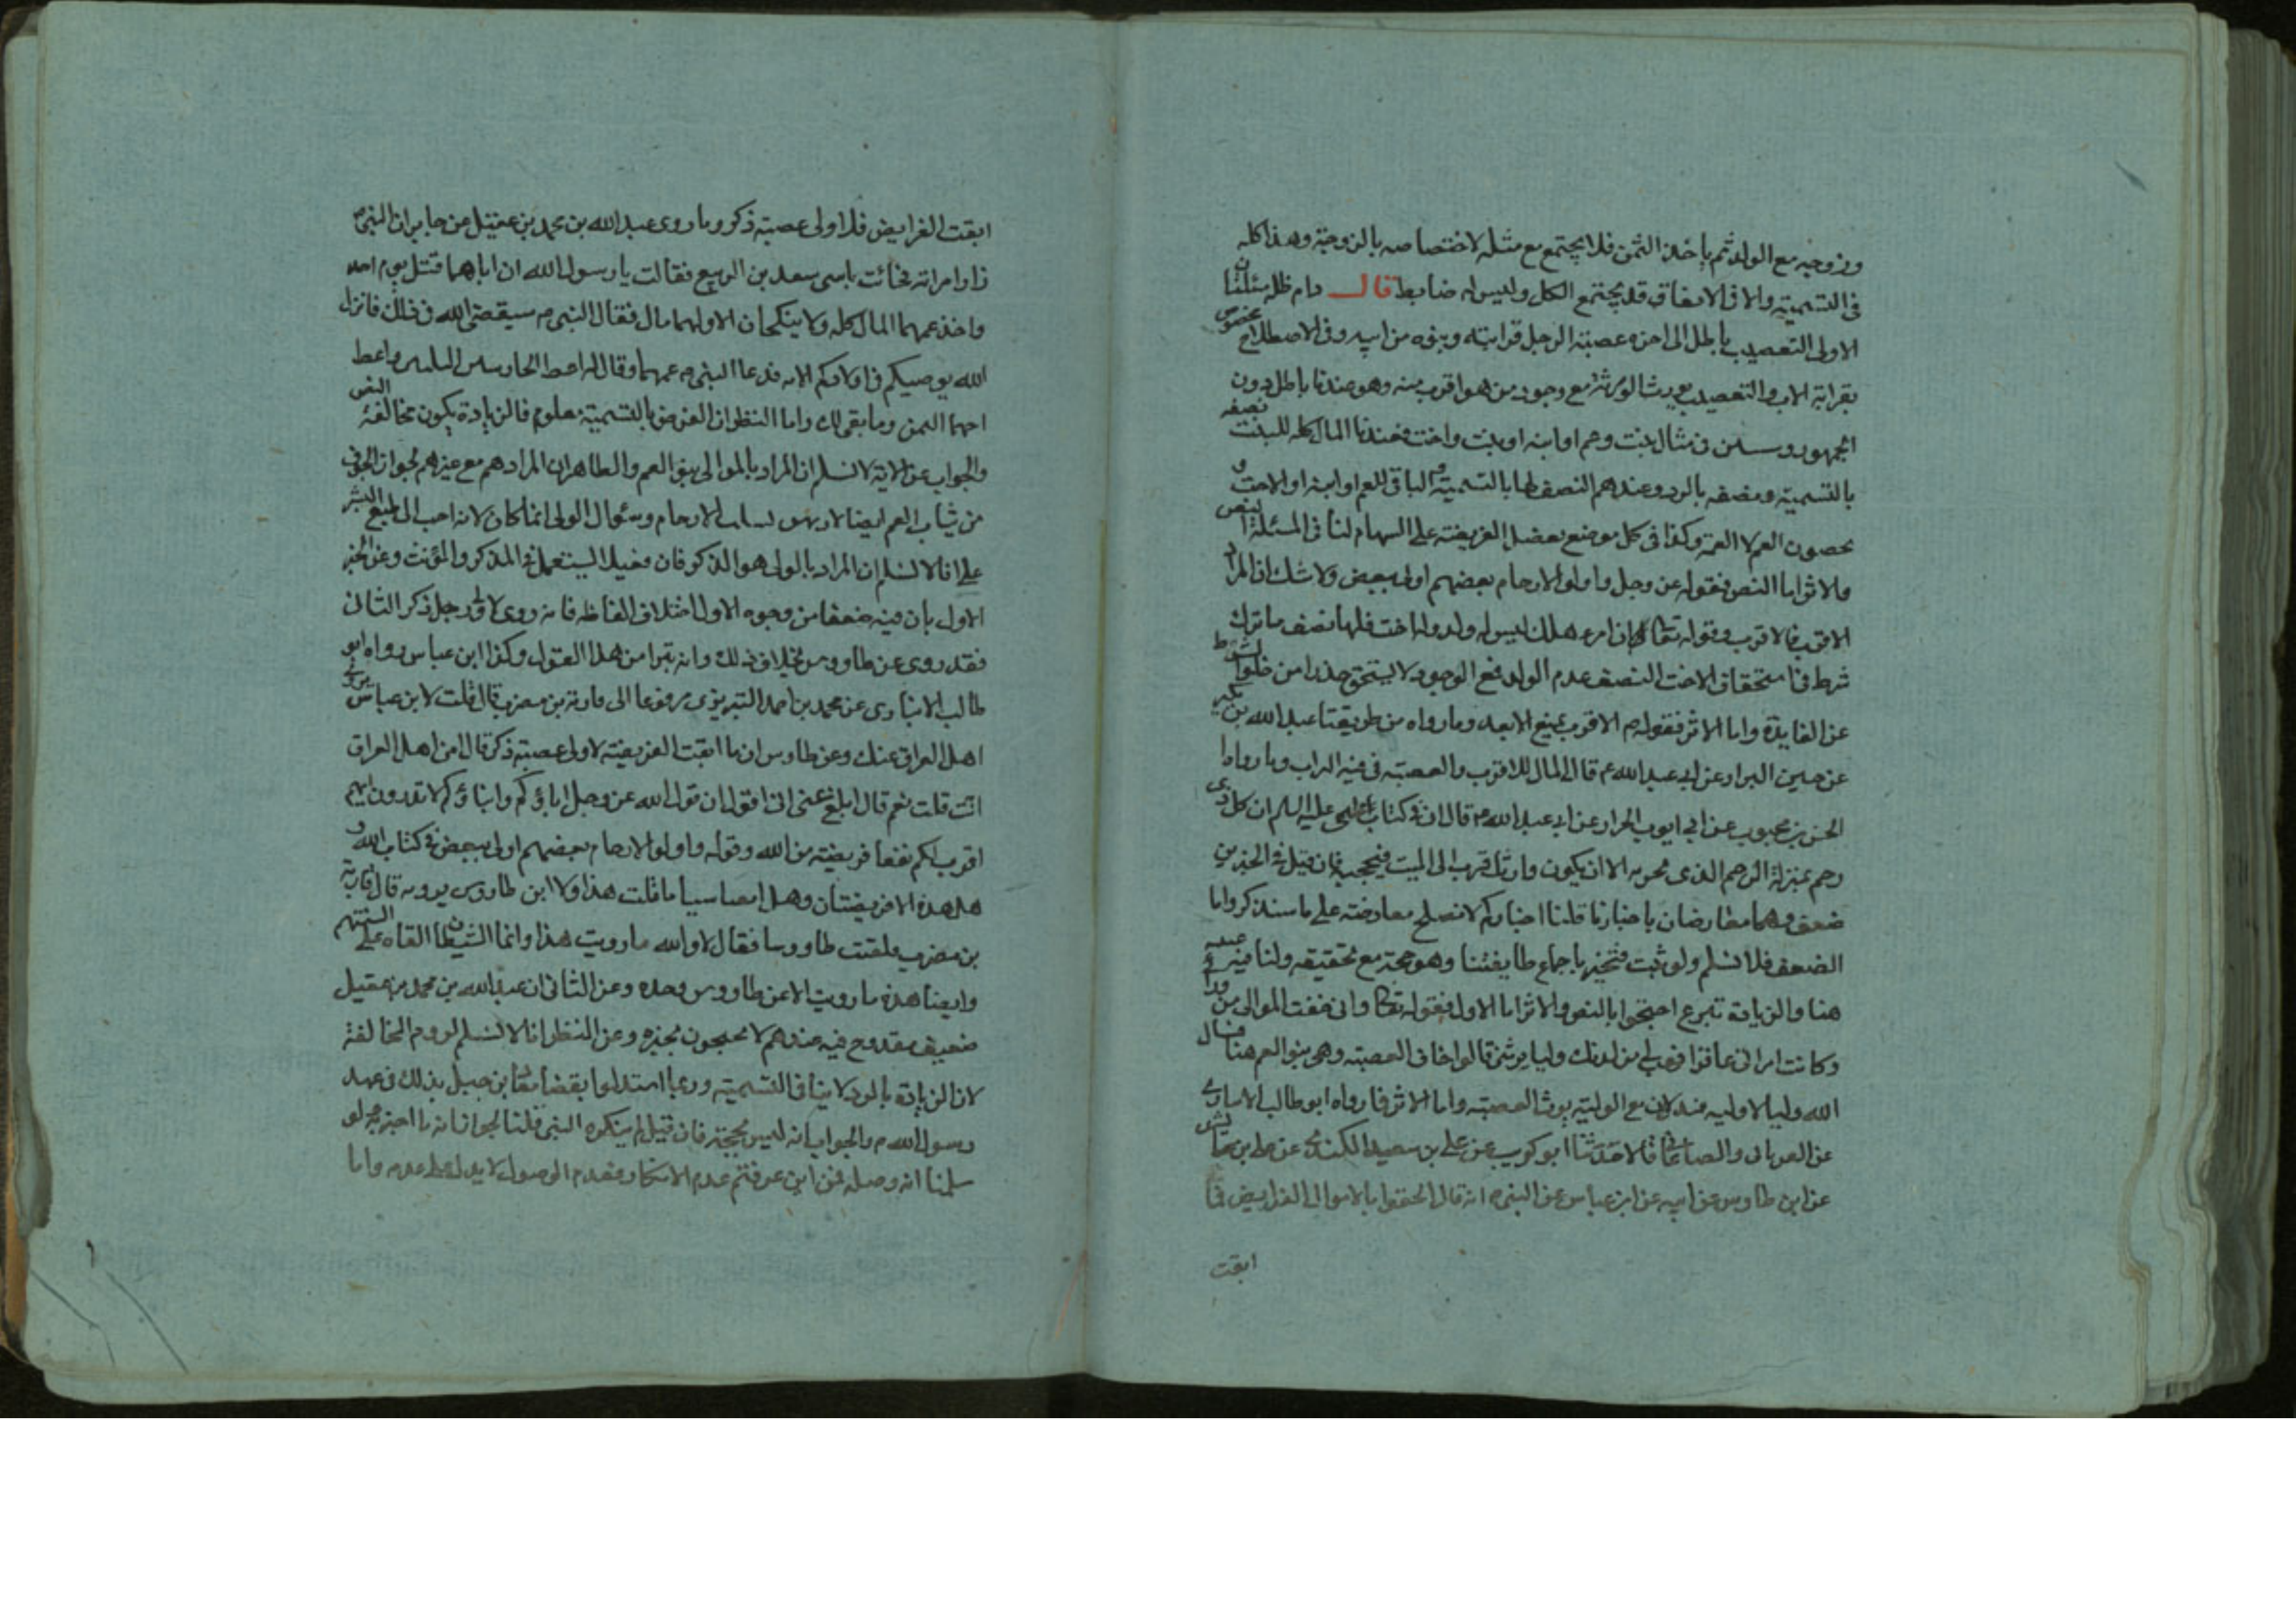 وزوجيه مع الولد ثم يأخذ الثمن فلا يجتمع مع مثله لاختصاصه بالزوجة وهذا كله
في التسمية والا فالاتفاق قد يجتمع الكل وليس له ضابط قال دام ظله مسئلتان
الاولى التعصيب باطل الى اخره عصبة الرجل قرابته وبنوه من ابيه وفى الاصطلاح مخصوص
بقرابة الاب والتعصيب يورث الورثة مع وجود من هو اقرب منه وهو عندنا باطل دون
الجمهور و في مثال بنت وعم او ابنه او بنت واخت فعندنا المال كله للبنت نصفه
بالتسمية ونصفه بالرد وعندهم النصف لها بالتسمية والباقي للعم او ابنه او الاخت و
يخصون العم لا العمة وكذا فى كل موضع يفضل الفريضة على السهام لنا فى المسئلة النص
والاثر اما النص فقوله عز وجل واولو الارحام بعضهم اولى ببعض ولا شك ان المراد
الاقرب فالاقرب وقوله تعالى ان امرء هلك ليس له ولد وله اخت فلها نصف ما ترك
شرط في استحقاق الاخت النصف عدم الولد فمع الوجود لا يستحق حذرا من خلو الشرط
عن الفايدة واما الاثر فقوله م الاقرب يمنع الابعد وما رواه من طريقنا عبد الله بن بكير
عن حسين البزاز عن ابي عبد الله ع قال المال للاقرب والعصبة فى فيه التراب وما رواه
الحسن بن محبوب عن ابي ايوب الخزاز عن ابي عبد الله ع قال ان فى كتاب علي عليه السلم ان كل ذى
رحم بمنزلة الرحم الذى يجر به الا ان يكون وارث اقرب الى الميت فيحجبه فان قيل فى الخبرين
ضعف وهما معارضان باخبارنا قلنا اخباركم لا تصلح معارضة على ما سنذكر واما
الضعف فلا نسلم ولو ثبت فتخير باجماع طايفتنا وهو حجة مع تحقيقه ولنا فيه غنية
هنا والزيادة تبرع احتجوا بالنص والاثر اما الاول فقوله تعالى وانى خفت الموالى من ورائى
وكانت امراتى عاقرا فهب لى من لدنك وليا يرثنى قالوا خاف العصبة وهى بنو العم هنا فسال
الله وليا لا ولية فدل ان مع الولية يرث العصبة واما الاثر فما رواه ابو طالب الانبارى
عن الفريابى والصاغانى قالا حدثنا ابو كريب عن علي بن سعيد الكندى عن على بن عابس
عن ابن طاوس عن ابيه عن ابن عباس عن النبى م انه قال الحقوا بالاموال الفرايض فما
ابقت
ابقت الفرايض فلاولى عصبة ذكر وما روى عبد الله بن محمد بن عقيل عن جابر ان النبى م
زار امراته فجائت بابنتي سعد بن الربيع فقالت يا رسول الله ان اباهما قتل يوم احد
واخذ عمهما المال كله ولا ينكحان الا ولهما مال فقال النبى م سيقضى الله فى ذلك فانزل
الله يوصيكم فى اولادكم الاية فدعا النبى م عمهما وقال له اعط الجاريتين الثلثين واعط
امهما الثمن وما بقى لك واما النظر ان الفرض بالتسمية معلوم فالزيادة يكون مخالفة النص
والجواب عن الاية لا نسلم ان المراد بالموالى بنو العم والظاهر ان المراد هم مع غيرهم لجواز الخوف
من شباب العم ايضا الارحام وسئوال الولى انما كان لانه احب الى طبع البشر
على انا لا نسلم ان المراد بالولى هو الذكر فان فعيلا يستعمل فى المذكر والمؤنث وعن الخبر
الاول بان فيه ضعفا من وجوه الاول اختلاف الفاظه فانه روى لاولى رجل ذكر الثانى
فقد روى عن طاووس بخلاف ذلك وانه تبرا من هذا القول وكذا ابن عباس رواه ابو
طالب الانبارى عن محمد بن احمد التبريزى مرفوعا الى قارية بن مضرب قال قلت لابن عباس يروى
اهل العراق عنك وعن طاوس ان ما ابقت الفريضة لاولى عصبة ذكر قال امن اهل العراق
انت قلت نعم قال ابلغ عنى انى اقول ان قول الله عز وجل اباؤكم وابناؤكم لا تدرون ايهم
اقرب لكم نفعا فريضة من الله وقوله واولو الارحام بعضهم اولى ببعض فى كتاب الله و
هل هذه الا فريضتان وهل ابقتا شيئا ما قلت هذا ولا ابن طاووس يرويه قال قارية
بن مضرب فلقيت طاووسا فقال لا والله ما رويت هذا وانما الشيطان القاه على السنتهم
وايضا هذه ما رويت الا عن طاووس وحده وعن الثانى ان عبد الله بن محمد بن عقيل
ضعيف مقدوح فيه عندهم لا يحتجون بخبره وعن النظر انا لا نسلم لزوم المخالفة
لان الزيادة بالرد لا ينافى التسمية وربما استدلوا بقضا معاذ بن جبل بذلك فى عهد
رسول الله م والجواب انه ليس بحجة فان قيل لم ينكره النبى قلنا لجواز انه ما اخبر به لو
سلمنا انه وصله فمن اين عرفتم عدم الانكار فعدم الوصول لا يدل على عدمه واما